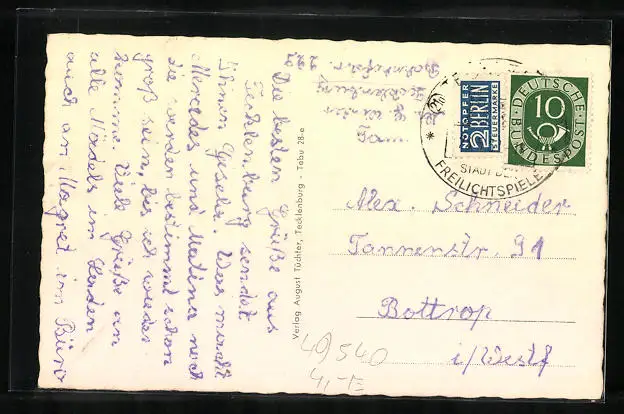 Die besten Grüße aus
Tecklenburg sendet
Ihnen Gisela. Was macht
Mercedes und Marina noch
die werden bestimmt schon
groß sein, bis ich wieder
komme. Viele Grüße an
alle Mädels im Laden
auch an Magret im Büro
Verlag August Tüchter, Tecklenburg - Tabu 28-e
Tecklenburg
Fam.
NOTOPFER
2 BERLIN
STEUERMARKE
DEUTSCHE
10
BUNDESPOST
STADT DER
FREILICHTSPIELE
Alex. Schneider
Tannenstr. 91
Bottrop
i/Westf
49540
4,-E